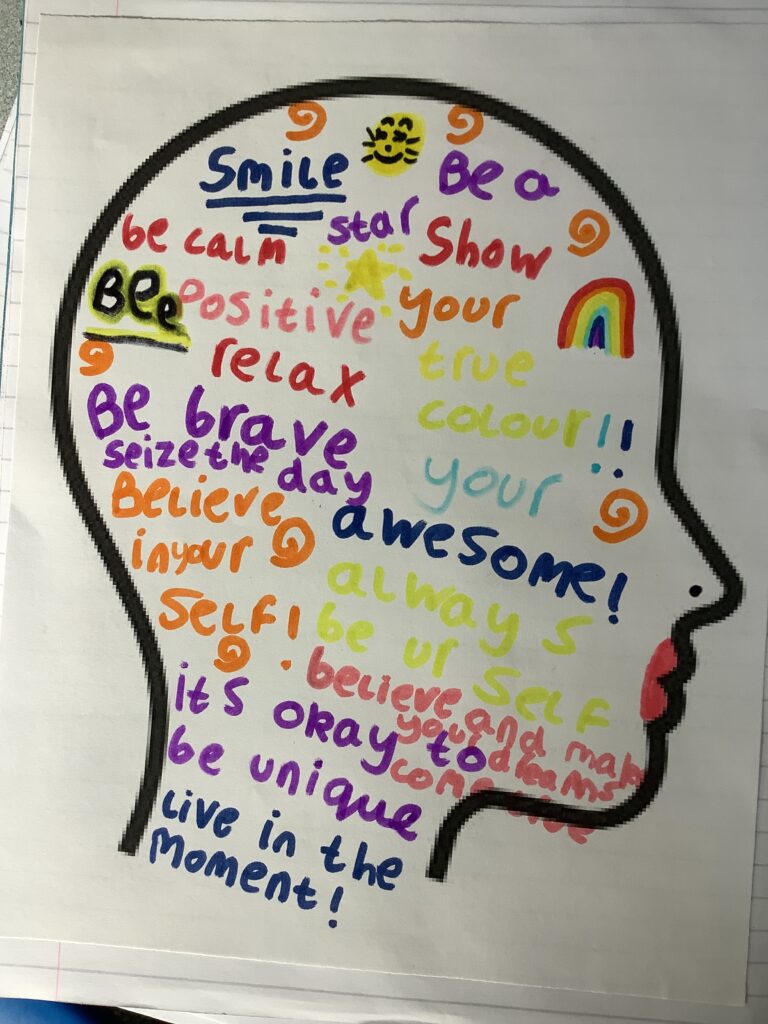 Smile
Be a
star
be calm
Show
Bee Positive
your
relax
true
colour!!
Be brave
seize the day
your
awesome!
Believe
in your
SELF!
always
be ur SELF
believe and make
your dreams
come
its okay to
be unique
Live in the
moment!